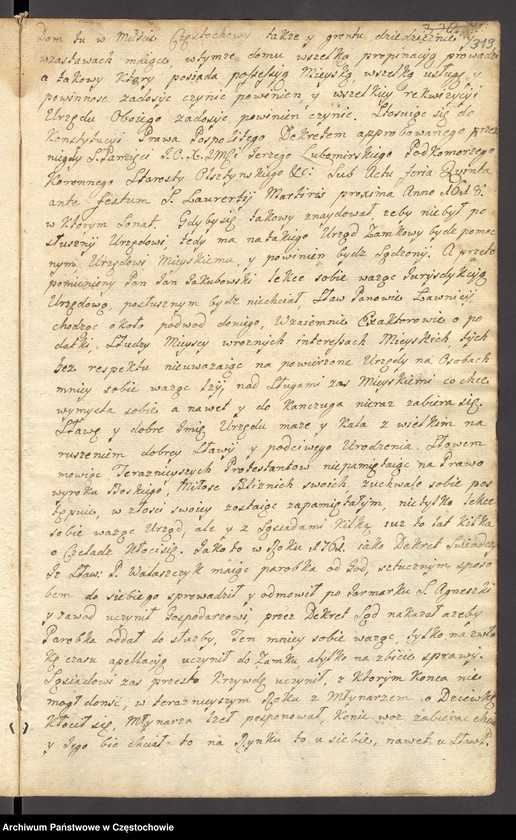 319
Dom tu w Miescie Częstochowy także y grontu dziedziczne
w zastawach maiąc, w tymże domu wszelką propinacyią prowadzi
a takowy ktory posiada possessyią Mieyską wszelką usługę y
powinnosc zadosyc czynic powinien y wszelkiey rekwizycyi
Urzędu Oboygo zadosyc powinien czynic. Stosuiąc się do
Konstytucyi Prawa Pospolitego Dekretem approbowanego przez
nigdy S. Pamięci J. O. X. JMci Jerzego Lubomirskiego Podkomorzego
Koronnego Starosty Olsztynskiego &c: Sub Actu feria Quinta
ante festum S. Laurentij Martiris proxima Anno
w ktorym Gdyby się takowy znaydował, zeby nie był po
słuszny Urzędowi, tedy ma na takiego Urząd Zamkowy bydz pomoc
nym Urzędowi Mieyskiemu, y powinien bydz Sądzony. A przeto
pomieniony Pan Jan Jakubowski lekce sobie ważąc Jurysdykcyią
Urzędową posłusznym bydz niechciał, Sław Panowie Ławnicy
chodząc około podwod do niego, Wzaiemnie Exaktorowie o po
datki. Słudzy Mieyscy w roznych interessach Mieyskich tych
bez respektu nieuwazaiąc na powierzone Urzędy na Osobach
mniey sobie ważąc lży, nad Sługami zas Mieyskiemi co chce
wymysla sobie a nawet y do Kanczuga nieraz zabiera się.
Sławę y dobre Imię Urzędu maze y Kala z wielkim na
ruszeniem dobrey Sławy y podciwego Urodzenia. Słowem
mowiąc Teraznieyszych Protestantow niepamiętaiąc na Prawo
wyroku Boskiego, Miłosc Bliznich swoich, zuchwale sobie pos
tępuie, w złosci swoiey zostaiąc zapamiętałym, nie tylko lekce
sobie ważąc Urząd, ale y z Sąsiadami Kilką, iuz to lat Kilka
o Czeladz Kłocisię. Jako to w Roku 1762. iako Dekret Swiadczy
Jz Sław: P. Walaszczyk maiąc parobka od God, sztucznym sposo
bem do siebie go sprowadził y odmowił po Jarmarku S. Agneszki
y zawod uczynił Gospodarzowi, przez Dekret Sąd nakazał azeby
Parobka oddał do słuzby, Ten mniey sobie ważąc, tylko na zwło
kę czasu apellacyią uczynił do Zamku, a tylko na zbicie sprawy.
Sąsiadowi zas przesto Krzywdę uczynił, z ktorym Konca nie
mogł donść, w teraznieyszym Roku z Młynarzem o Dziewkę
Kłocił się, Młynarza lżeł postponował, Konie woz zabierac chciał
y Jego bic chciał to na Rynku to u siebie, nawet u Sław: P.
Archiwum Państwowe w Częstochowie